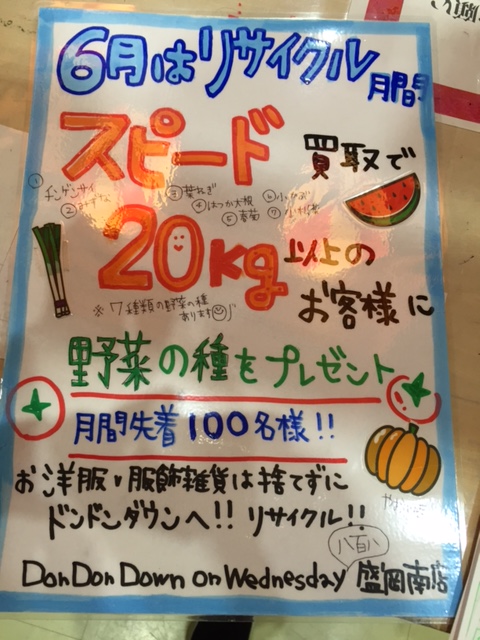 6月はリサイクル月間
スピード買取で
①チンゲンサイ
②みずな
③葉ねぎ
④はつか大根
⑤春菊
⑥小かぶ
⑦小松菜
20kg以上の
お客様に
※7種類の野菜の種
あります
野菜の種をプレゼント
月間先着100名様!!
お洋服・服飾雑貨は捨てずに
ドンドンダウンへ!! リサイクル!!
八百八
DonDonDown on Wednesday 盛岡南店